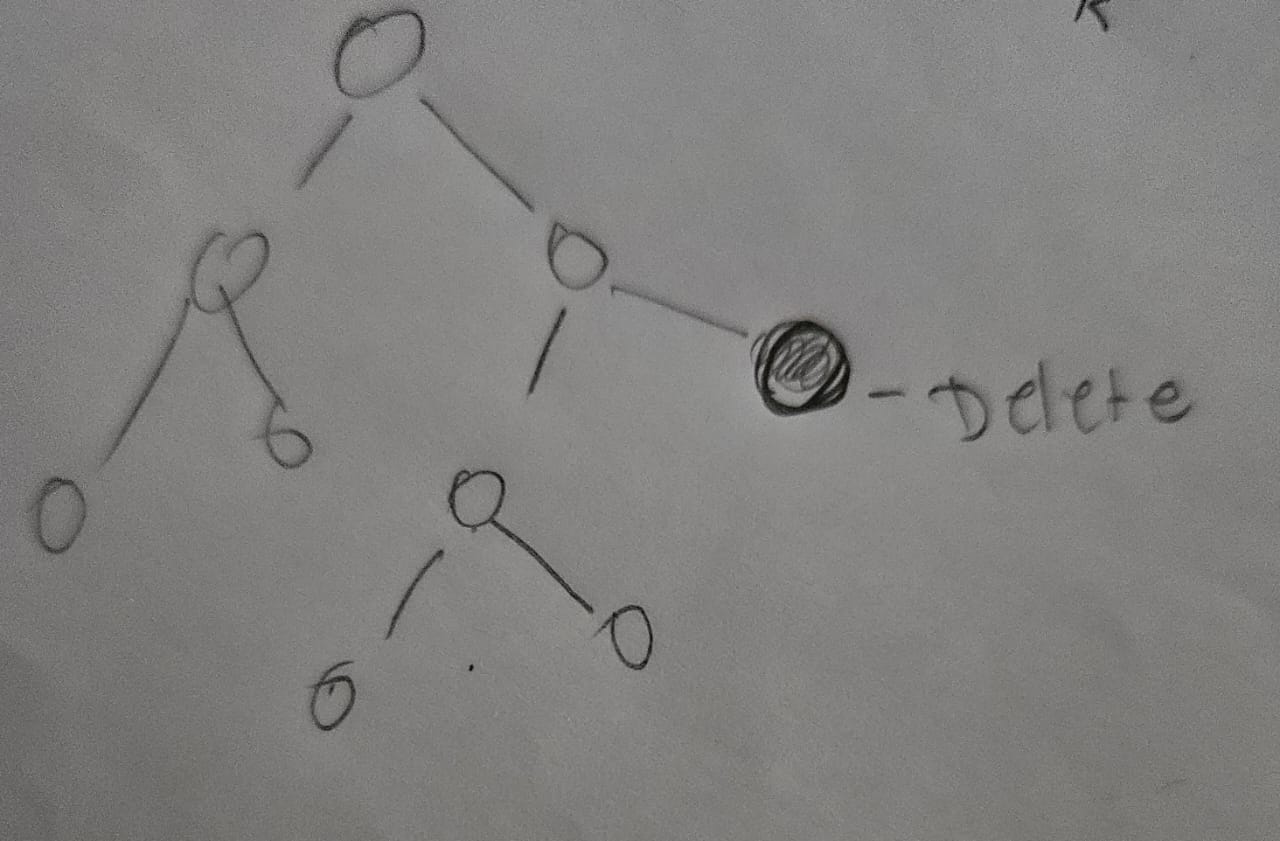 - Delete